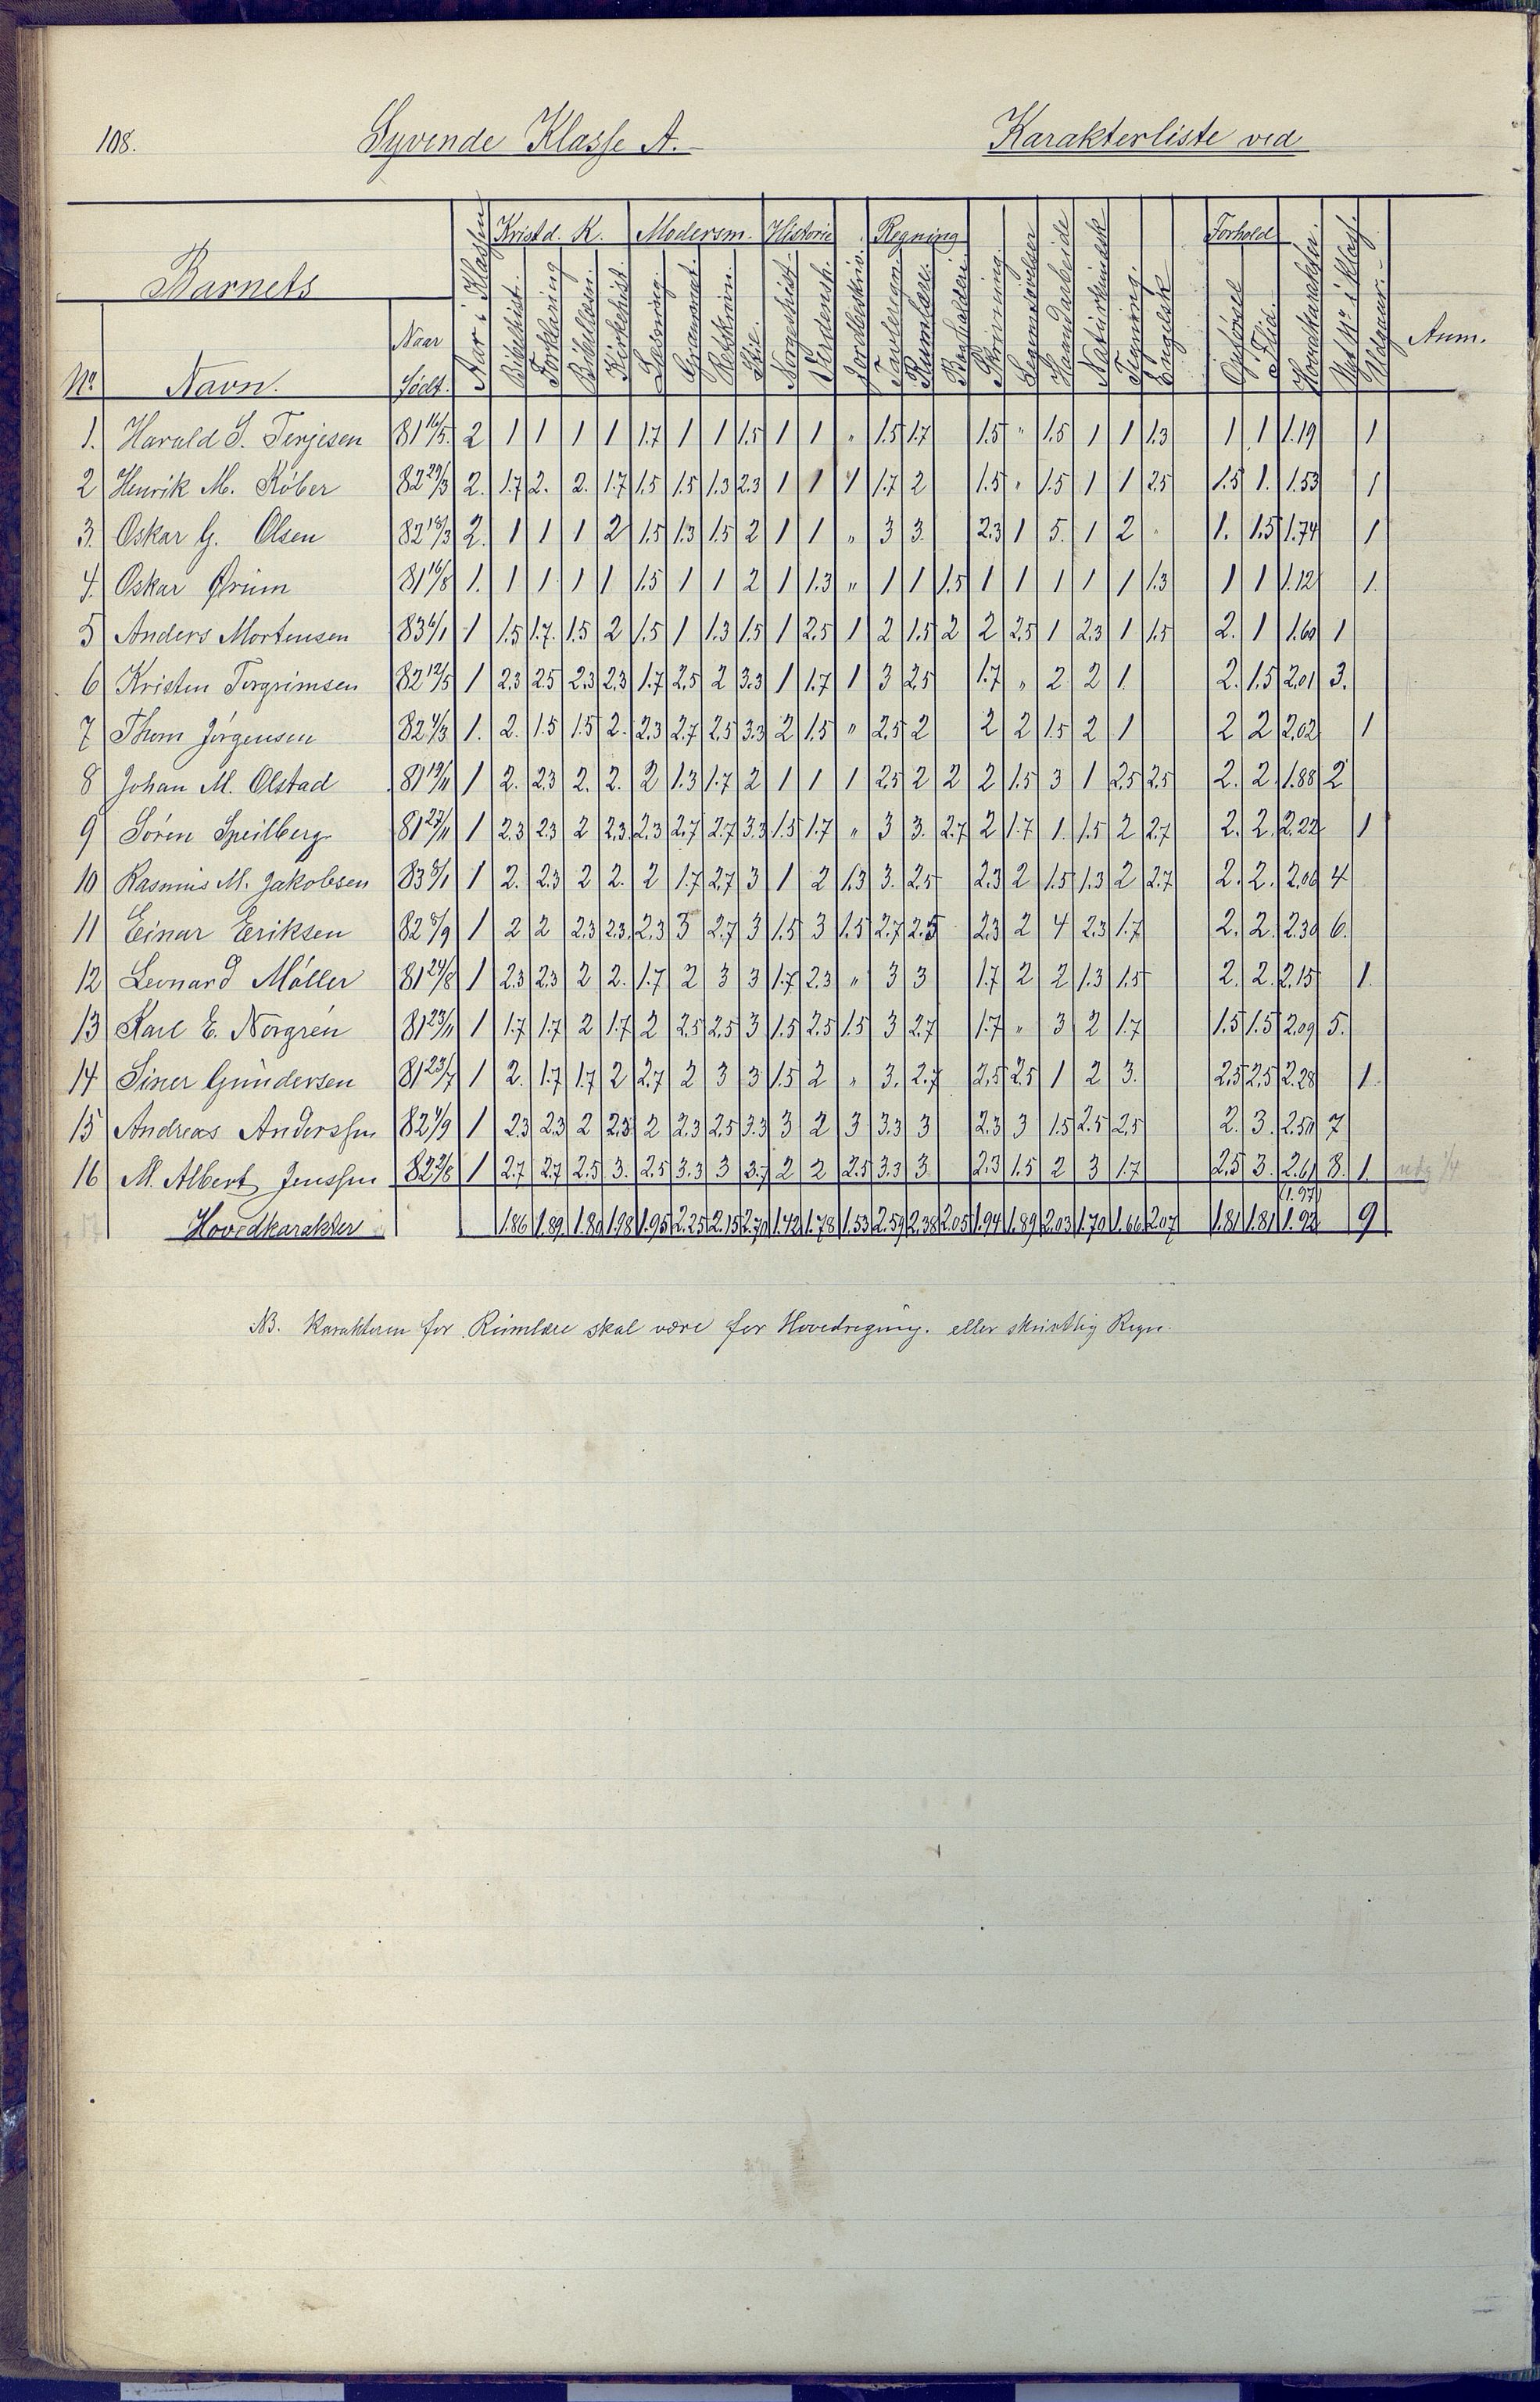 108. Syvende Klasse A. Karakterliste ved
Barnets Aar i Klassen Kristd. K. Modersm. Historie Jordbeskriv. Regning Skrivning Legemsøvelser Haandarbeide Naturkundsk Tegning. Engelsk Forhold Hovedkarakter. Nyt No. i Klass. Udgaar. Anm.
No. Navn. Naar Født. Bibelhist. Forklaring Bibellæsn. Kirkehist. Læsning. Grammat. Retskrivn. Stil. Norgeshist. Verdensh. Tavleregn. Rumlære. Boghalderi. Opførsel Flid.
1. Harald S. Terjesen 81 16/5. 2 1 1 1 1 1.7 1 1 1.5 1 1 " 1.5 1.7 1.5 " 1.5 1 1 1.3 1 1 1.19 1
2 Henrik M. Köber 82 29/3 2. 1.7 2. 2. 1.7 1.5 1.5 1.3 2.3 1 1 1 1.7 2 1.5 " 1.5 1 1 2.5 1.5 1. 1.53 1
3. Oskar G. Olsen 82 18/3 2. 1 1 1 2 1.5 1.3 1.5 2 1 1 " 3 3. 2.3 1 5. 1 2 " 1. 1.5 1.74 1
4. Oskar Örum 81 16/8 1. 1 1 1 1 1.5 1 1 2 1 1.3 " 1 1 1.5 1 1 1 1 1 1.3 1 1 1.12 1.
5 Anders Mortensen 83 6/1 1 1.5 1.7. 1.5 2 1.5 1 1.3 1.5 1 2.5 1 2 1.5 2 2 2.5 1 2.3 1 1.5 2. 1 1.60 1
6 Kristen Torgrimsen 82 12/5 1 2.3 2.5 2.3 2.3 1.7 2.5 2 3.3 1 1.7 1 3 2.5 1.7 " 2 2 1. 2. 1.5 2.01 3.
7 Thom Jörgensen 82 4/3 1. 2. 1.5 1.5 2. 2.3 2.7 2.5 3.3 2 1.5 " 2.5 2 2 2 1.5 2 1 2 2 2.02 1
8 Johan M. Olstad 81 19/11 1 2. 2.3 2. 2. 2 1.3 1.7 2 1 1 1 2.5 2 2 2 1.5 3 1 2.5 2.5 2. 2. 1.88 2
9 Sören Speilberg 81 27/11 1 2.3 2.3 2 2.3. 2.3 2.7 2.7 3.3 1.5 1.7 " 3 3. 2.7 2 1.7 1. 1.5 2 2.7 2. 2. 2.22 1
10 Rasmus M. Jakobsen 83 8/1 1 2. 2.3 2 2. 2 1.7 2.7 3 1 2 1.3 3. 2.5 2.3 2 1.5 1.3 2 2.7 2. 2. 2.06 4
11 Einar Eriksen 82 8/9 1 2 2 2.3 2.3. 2.3 3 2.7 3 1.5 3 1.5 2.7 2.5 2.3 2 4 2.3 1.7 2. 2. 2.30 6.
12 Leonard Möller 81 24/8 1 2.3 2.3 2 2. 1.7 2 3 3 1.7 2.3 " 3 3 1.7 2 2 1.3 1.5 2. 2. 2.15 1.
13 Karl E. Norgrén 81 23/11 1 1.7 1.7 2 1.7 2 2.5 2.5 3 1.5 2.5 1.5 3 2.7 1.7 " 3 2 1.7 1.5 1.5 2.09 5.
14 Siner Gundersen 81 23/7 1 2. 1.7 1.7 2 2.7 2 3 3 1.5 2 " 3. 2.7 2.5 2.5 1 2 3. 2.5 2.5 2.28 1.
15 Andreas Anderssen 82 4/9 1 2.3 2.3 2 2.3 2 2.3 2.5 3.3 3 2 3 3.3 3 2.3 3 1.5 2.5 2.5 2. 3. 2.50 7
16 M. Albert Jenssen 82 2/8 1 2.7 2.7 2.5 3. 2.5 3.3 3 3.7 2 2 2.5 3.3 3. 2.3 1.5 2 3 1.7 2.5 3. 2.61 8. 1. udg 1/4
(1.97)
17 Hovedkarakter 1.86 1.89. 1.80 1.98 1.95 2.25 2.15 2.70 1.42 1.78 1.53 2.59 2.38 2.05 1.94 1.89 2.03 1.70 1.66 2.07 1.81 1.81 1.92 9
NB. Karakteren for Rumlære skal være for Hovedregning. eller skriftlig Regn.